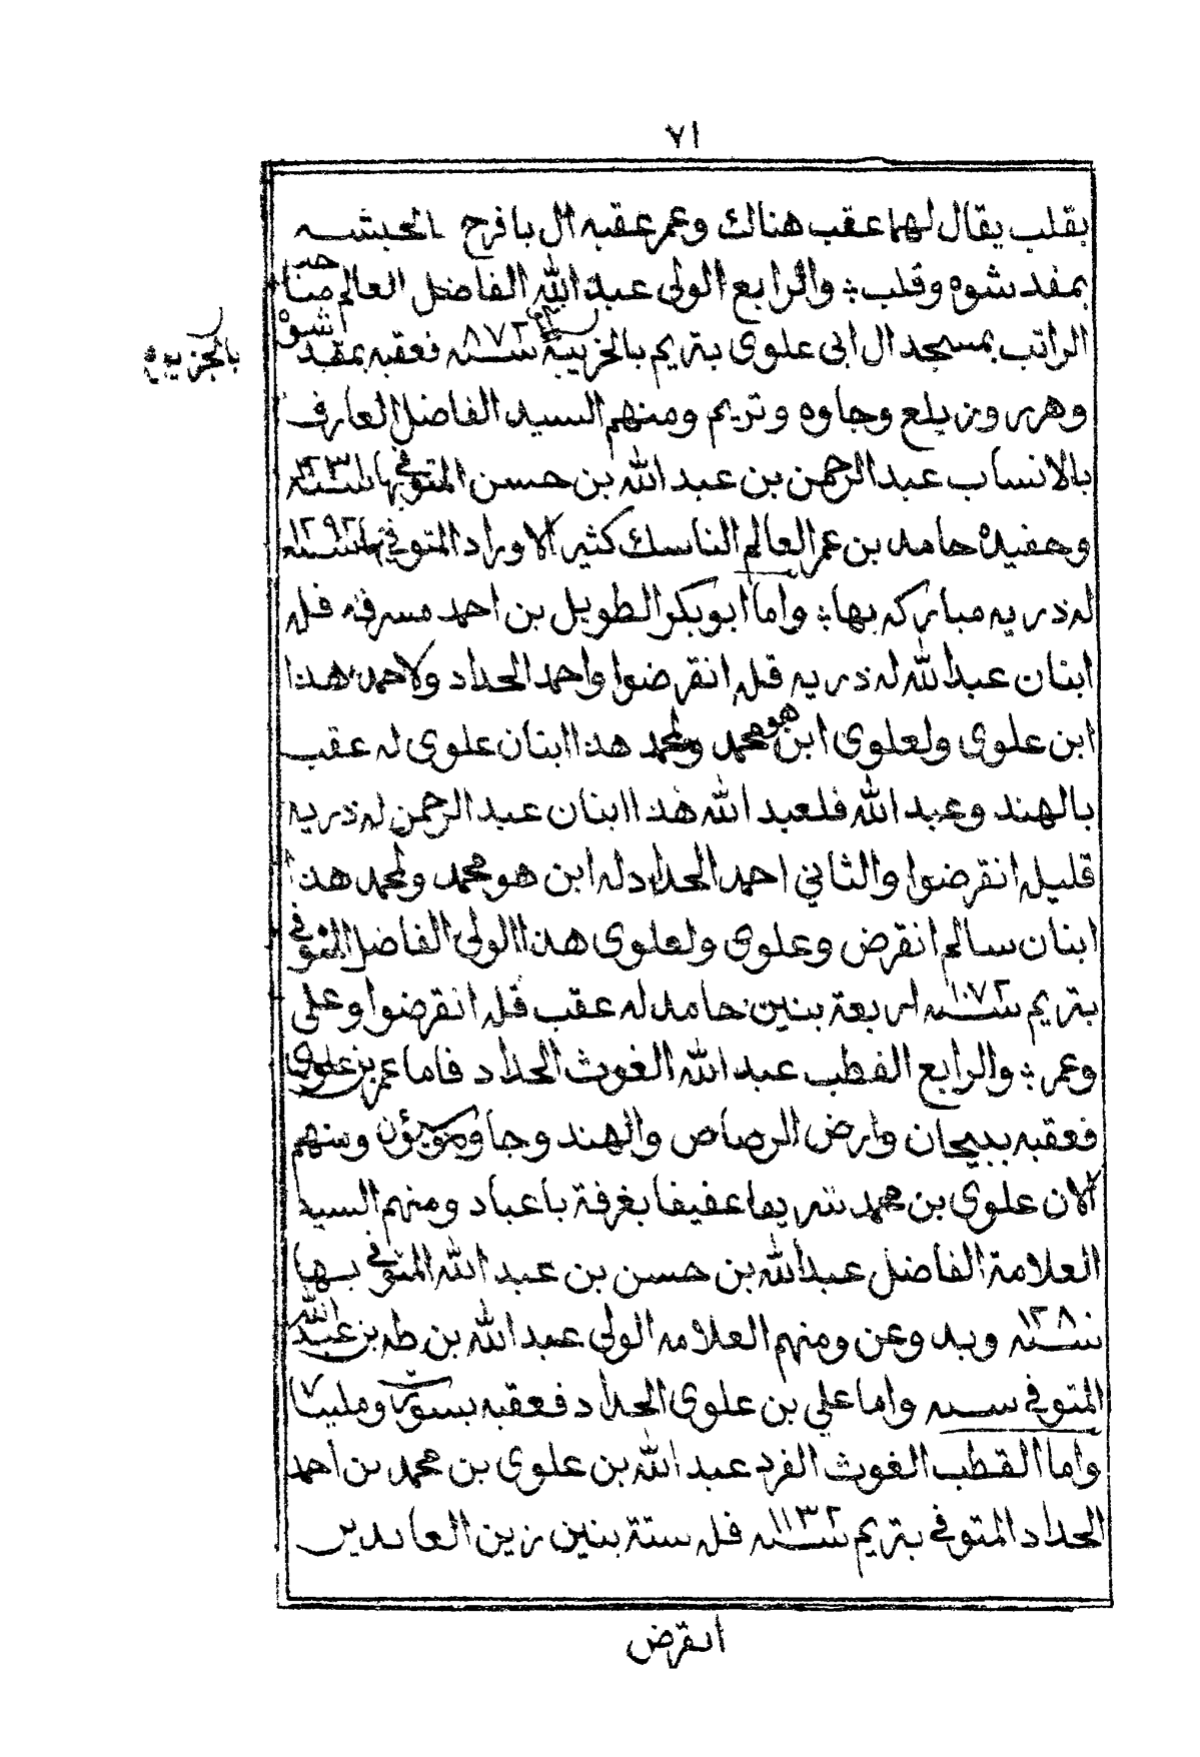 ٧١
بقلب يقال لهما عقب هناك وعمر عقبه ال بافرج الحبشه
بمقدشوه وقلب ؛ والرابع الولي عبد الله الفاضل العالم
الراتب بمسجد ال ابي علوي بتريم بالخريبة سنه ٨٧٢ فعقبه بمقدشوه
وهرر وزيلع وجاوه وتريم ومنهم السيد الفاضل العارف
بالانساب عبد الرحمن بن عبد الله بن حسن المتوفي بها سنه
وحفيده حامد بن عمر العالم الناسك كثير الاوراد المتوفي بها سنه ١٢٩٢
له ذريه مباركه بها ؛ واما ابو بكر الطويل بن احمد مسرفه فله
ابنان عبد الله له ذريه قله انقرضوا واحمد الحداد ولاحمد هذا
ابن علوي ولعلوي ابن هو محمد ولمحمد هذا ابنان علوي له عقب
بالهند وعبد الله فلعبد الله هذا ابنان عبد الرحمن له ذريه
قليله انقرضوا والثاني احمد الحداد له ابن هو محمد ولمحمد هذا
ابنان سالم انقرض وعلوي ولعلوي هذا الولي الفاضل المتوفي
بتريم سنه ١٠٧٢ اربعة بنين حامد له عقب قله انقرضوا وعلي
وعمر ؛ والرابع القطب عبد الله الغوث الحداد فاما عمر بن علوي
فعقبه ببيحان وارض الرصاص والهند وجاوه وسيؤن ومنهم
الان علوي بن محمد شريفا عفيفا بغرفة باعباد ومنهم السيد
العلامة الفاضل عبد الله بن حسن بن عبد الله المتوفي بها
سنه ١٢٨٠ وبدوعن ومنهم العلامه الولي عبد الله بن طه بن عبد الله
المتوفي سنه واما علي بن علوي الحداد فعقبه بسورت ومليبا
واما القطب الغوث الفرد عبد الله بن علوي بن محمد بن احمد
الحداد المتوفي بتريم سنه ١١٣٢ فله ستة بنين زين العابدين
انقرض